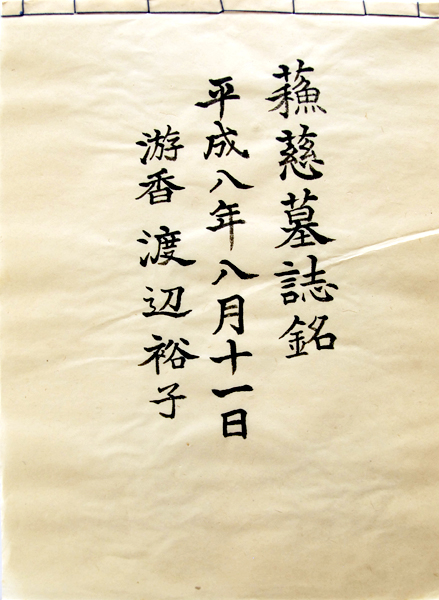 蘓慈墓誌銘
平成八年八月十一日
游香 渡辺裕子